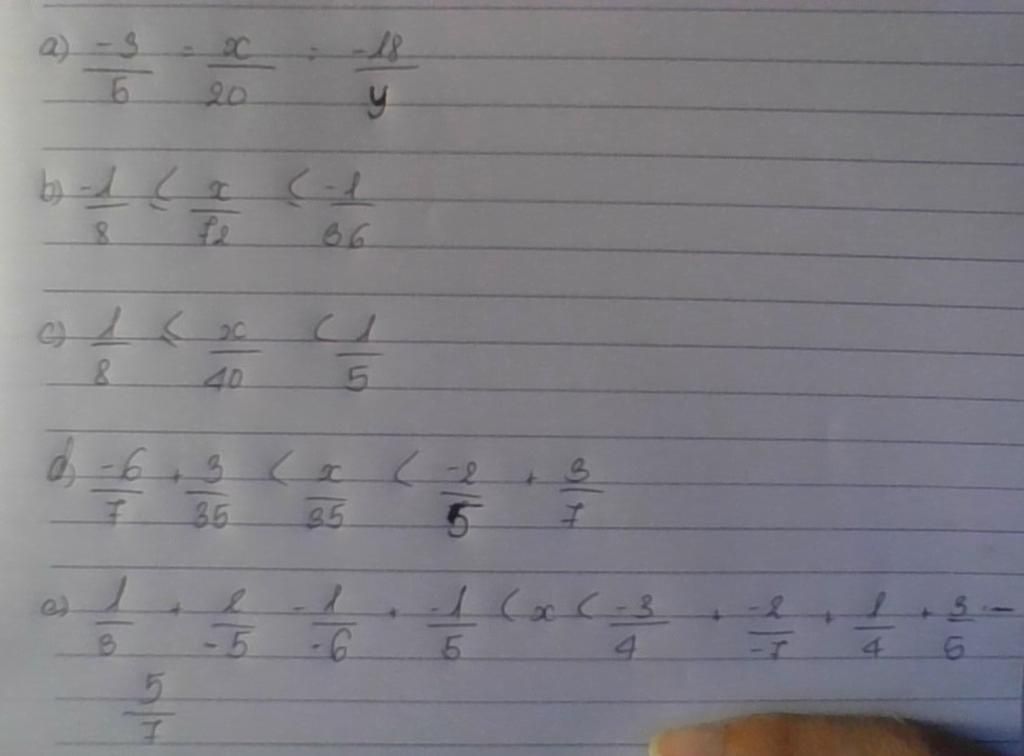 a) -3/5 = x/20 = -18/y
b) -1/8 ≤ x/72 ≤ -1/36
c) 1/8 ≤ x/40 < 1/5
d) -6/7 + 3/35 < x/35 < -2/5 + 3/7
e) 1/3 + 2/-5 - 1/-6 + -1/5 < x < -3/4 + -2/-7 + 1/4 + 3/5 -
5/7